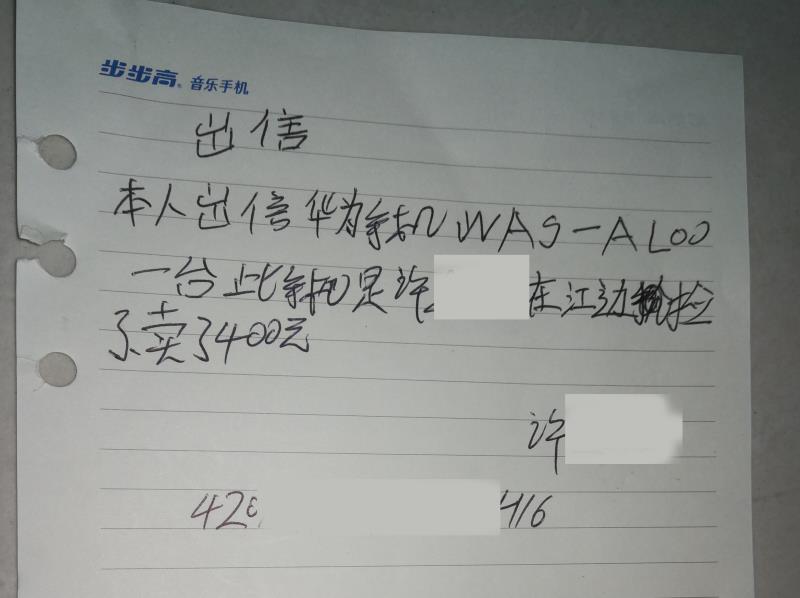 步步高 音乐手机
出信
本人出信华为手机WAS-AL00
一台此手机是许 在江边捡
了、卖了400元
许
420 416